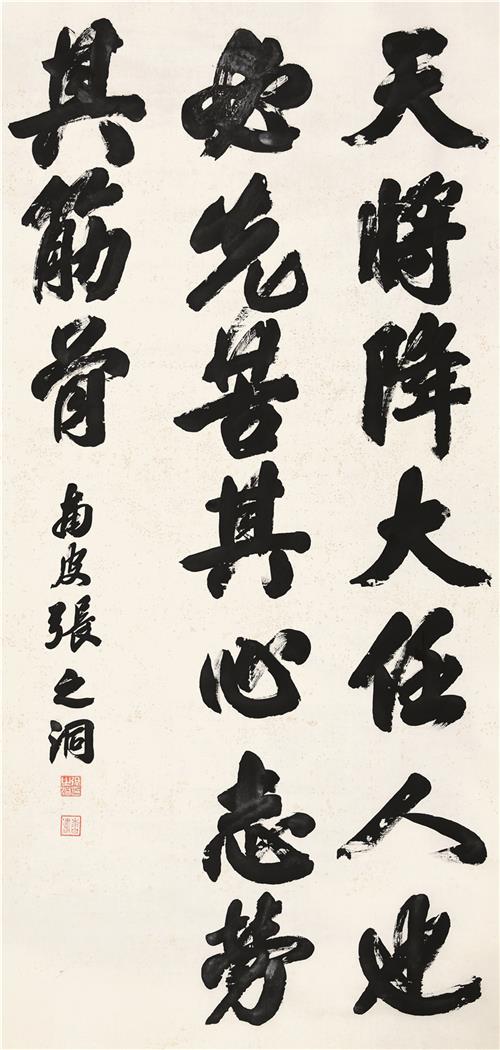 天將降大任人也
必先苦其心志勞
其筋骨
南皮張之洞